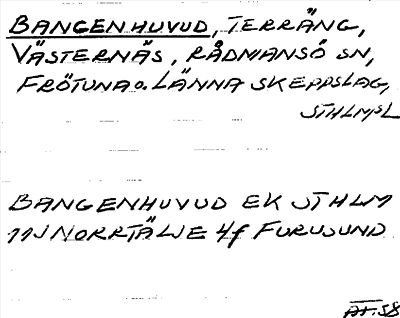 BANGENHUVUD, TERRÄNG,
VÄSTERNÄS, RÅDMANSÖ SN,
FRÖTUNA o. LÄNNA SKEPPSLAG,
STHLMS L
BANGENHUVUD EK STHLM
11J NORRTÄLJE 4f FURUSUND
AF. 58